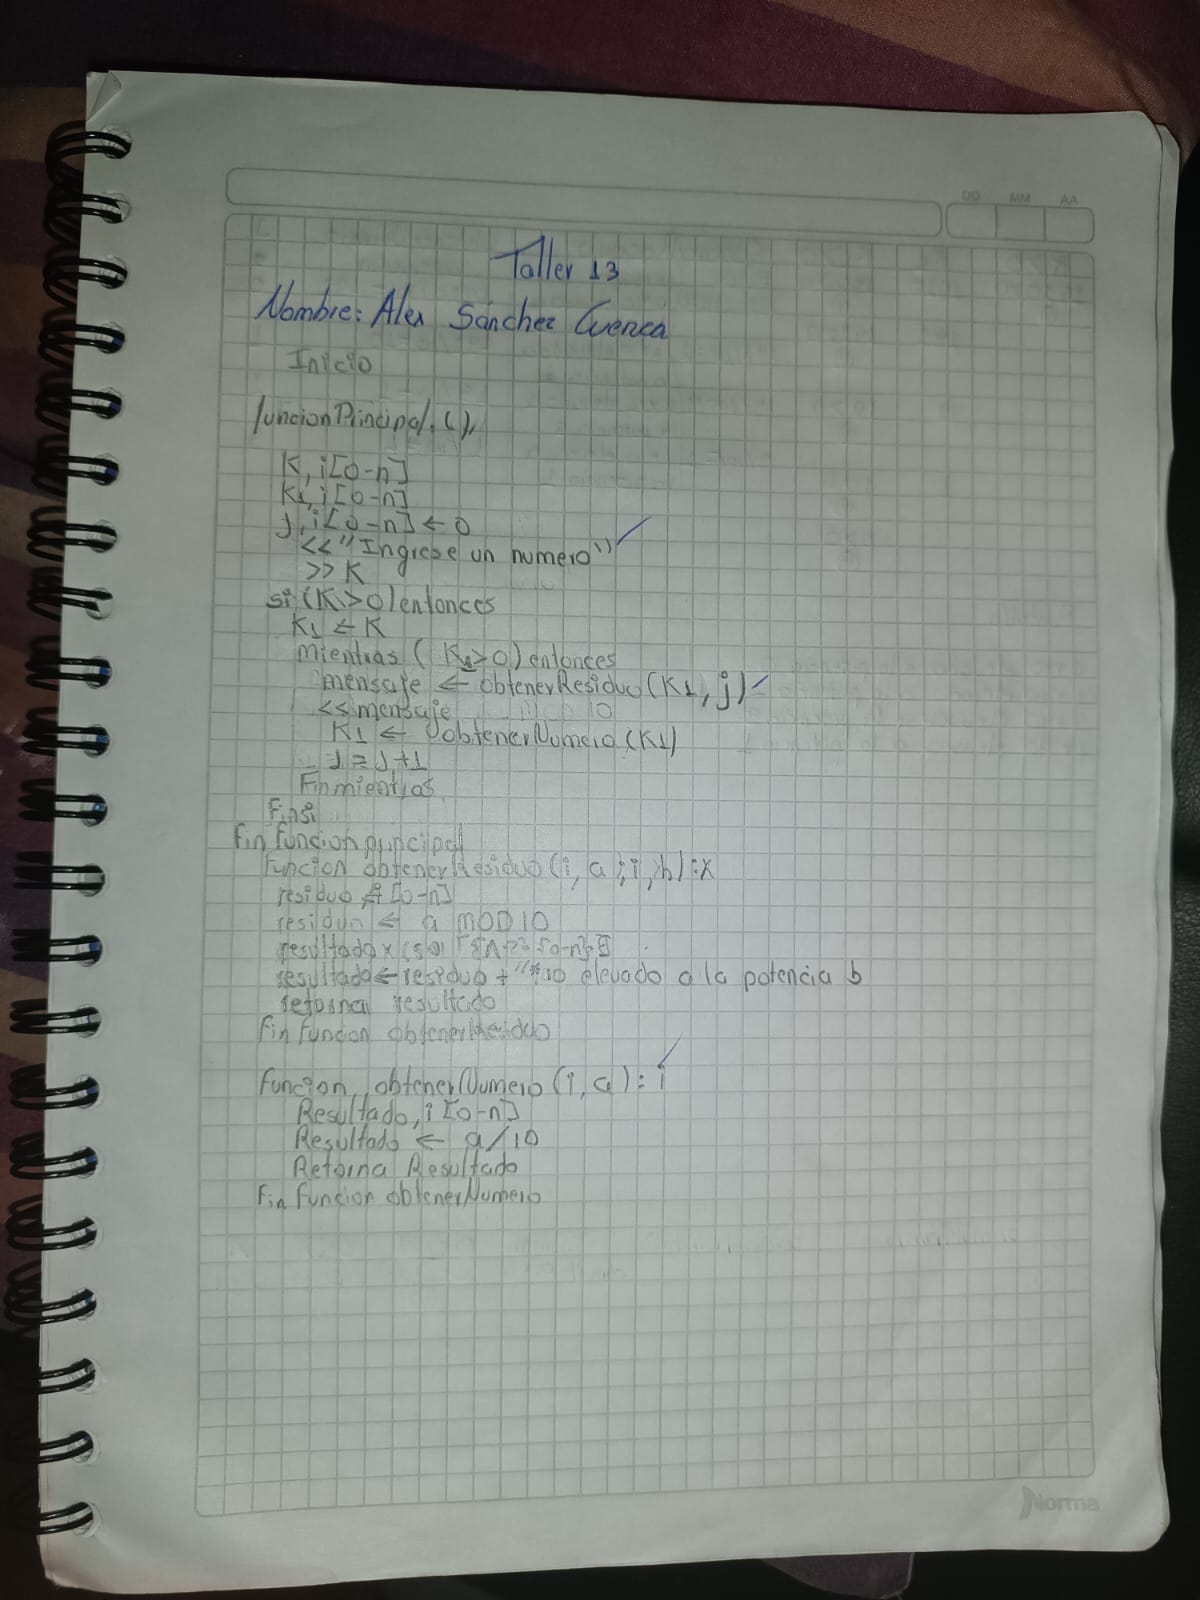 DD MM AA
Taller 13
Nombre: Alex Sánchez Cuenca
Inicio
funcionPrincipal ()
K, i[0-n]
K1, i[0-n]
j, i[0-n] ← 0
<<"Ingrese un numero"
>> K
si (K>0) entonces
K1 ← K
mientras ( K1>0) entonces
mensaje ← obtenerResiduo (K1, j)
<<mensaje
K1 ← obtenerNumero (K1)
j = j+1
Finmientras
Finsi
Fin funcion principal
Funcion obtenerResiduo (i, a ; i, b) : x
residuo [0-n]
residuo ← a MOD 10
resultado x
resultado ← residuo + "*10 elevado a la potencia b
retorna resultado
Fin funcion obtenerResiduo
Funcion obtenerNumero (i, a) : i
Resultado, i [0-n]
Resultado ← a/10
Retorna Resultado
Fin funcion obtenerNumero
Norma